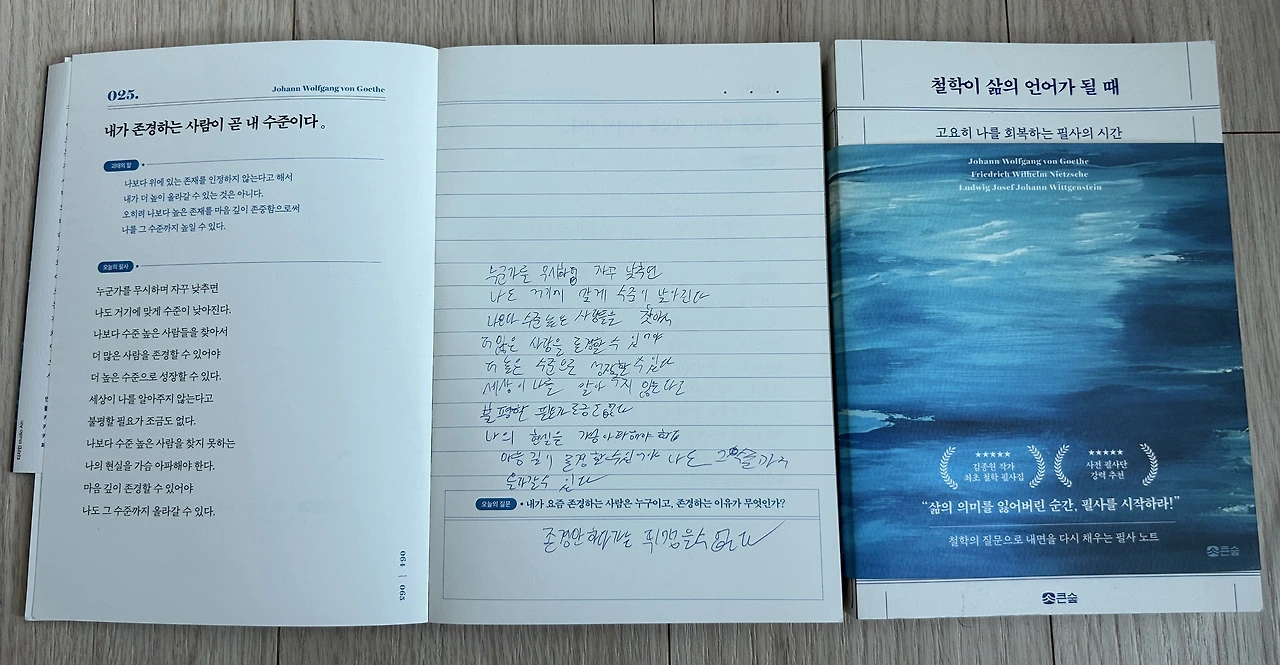 025.
Johann Wolfgang von Goethe
내가 존경하는 사람이 곧 내 수준이다。
괴테의 말
나보다 위에 있는 존재를 인정하지 않는다고 해서
내가 더 높이 올라갈 수 있는 것은 아니다.
오히려 나보다 높은 존재를 마음 깊이 존중함으로써
나를 그 수준까지 높일 수 있다.
오늘의 필사
누군가를 무시하며 자꾸 낮추면
나도 거기에 맞게 수준이 낮아진다.
나보다 수준 높은 사람들을 찾아서
더 많은 사람을 존경할 수 있어야
더 높은 수준으로 성장할 수 있다.
세상이 나를 알아주지 않는다고
불평할 필요가 조금도 없다.
나보다 수준 높은 사람을 찾지 못하는
나의 현실을 가슴 아파해야 한다.
마음 깊이 존경할 수 있어야
나도 그 수준까지 올라갈 수 있다.
064 | 065
누군가를 무시하며 자꾸 낮추면
나도 거기에 맞게 수준이 낮아진다
나보다 수준 높은 사람들을 찾아서
더 많은 사람을 존경할 수 있어야
더 높은 수준으로 성장할 수 있다
세상이 나를 알아주지 않는다고
불평할 필요가 조금도 없다
나의 현실을 가슴 아파해야 한다
마음 깊이 존경할 수 있어야 나도 그
수 있다
오늘의 질문
내가 요즘 존경하는 사람은 누구이고, 존경하는 이유가 무엇인가?
없다
철학이 삶의 언어가 될 때
고요히 나를 회복하는 필사의 시간
Johann Wolfgang von Goethe
Friedrich Wilhelm Nietzsche
Ludwig Josef Johann Wittgenstein
★★★★★
김종원 작가
최초 철학 필사집
★★★★★
사전 필사단
강력 추천
“삶의 의미를 잃어버린 순간, 필사를 시작하라!”
철학의 질문으로 내면을 다시 채우는 필사 노트
큰숲
큰숲